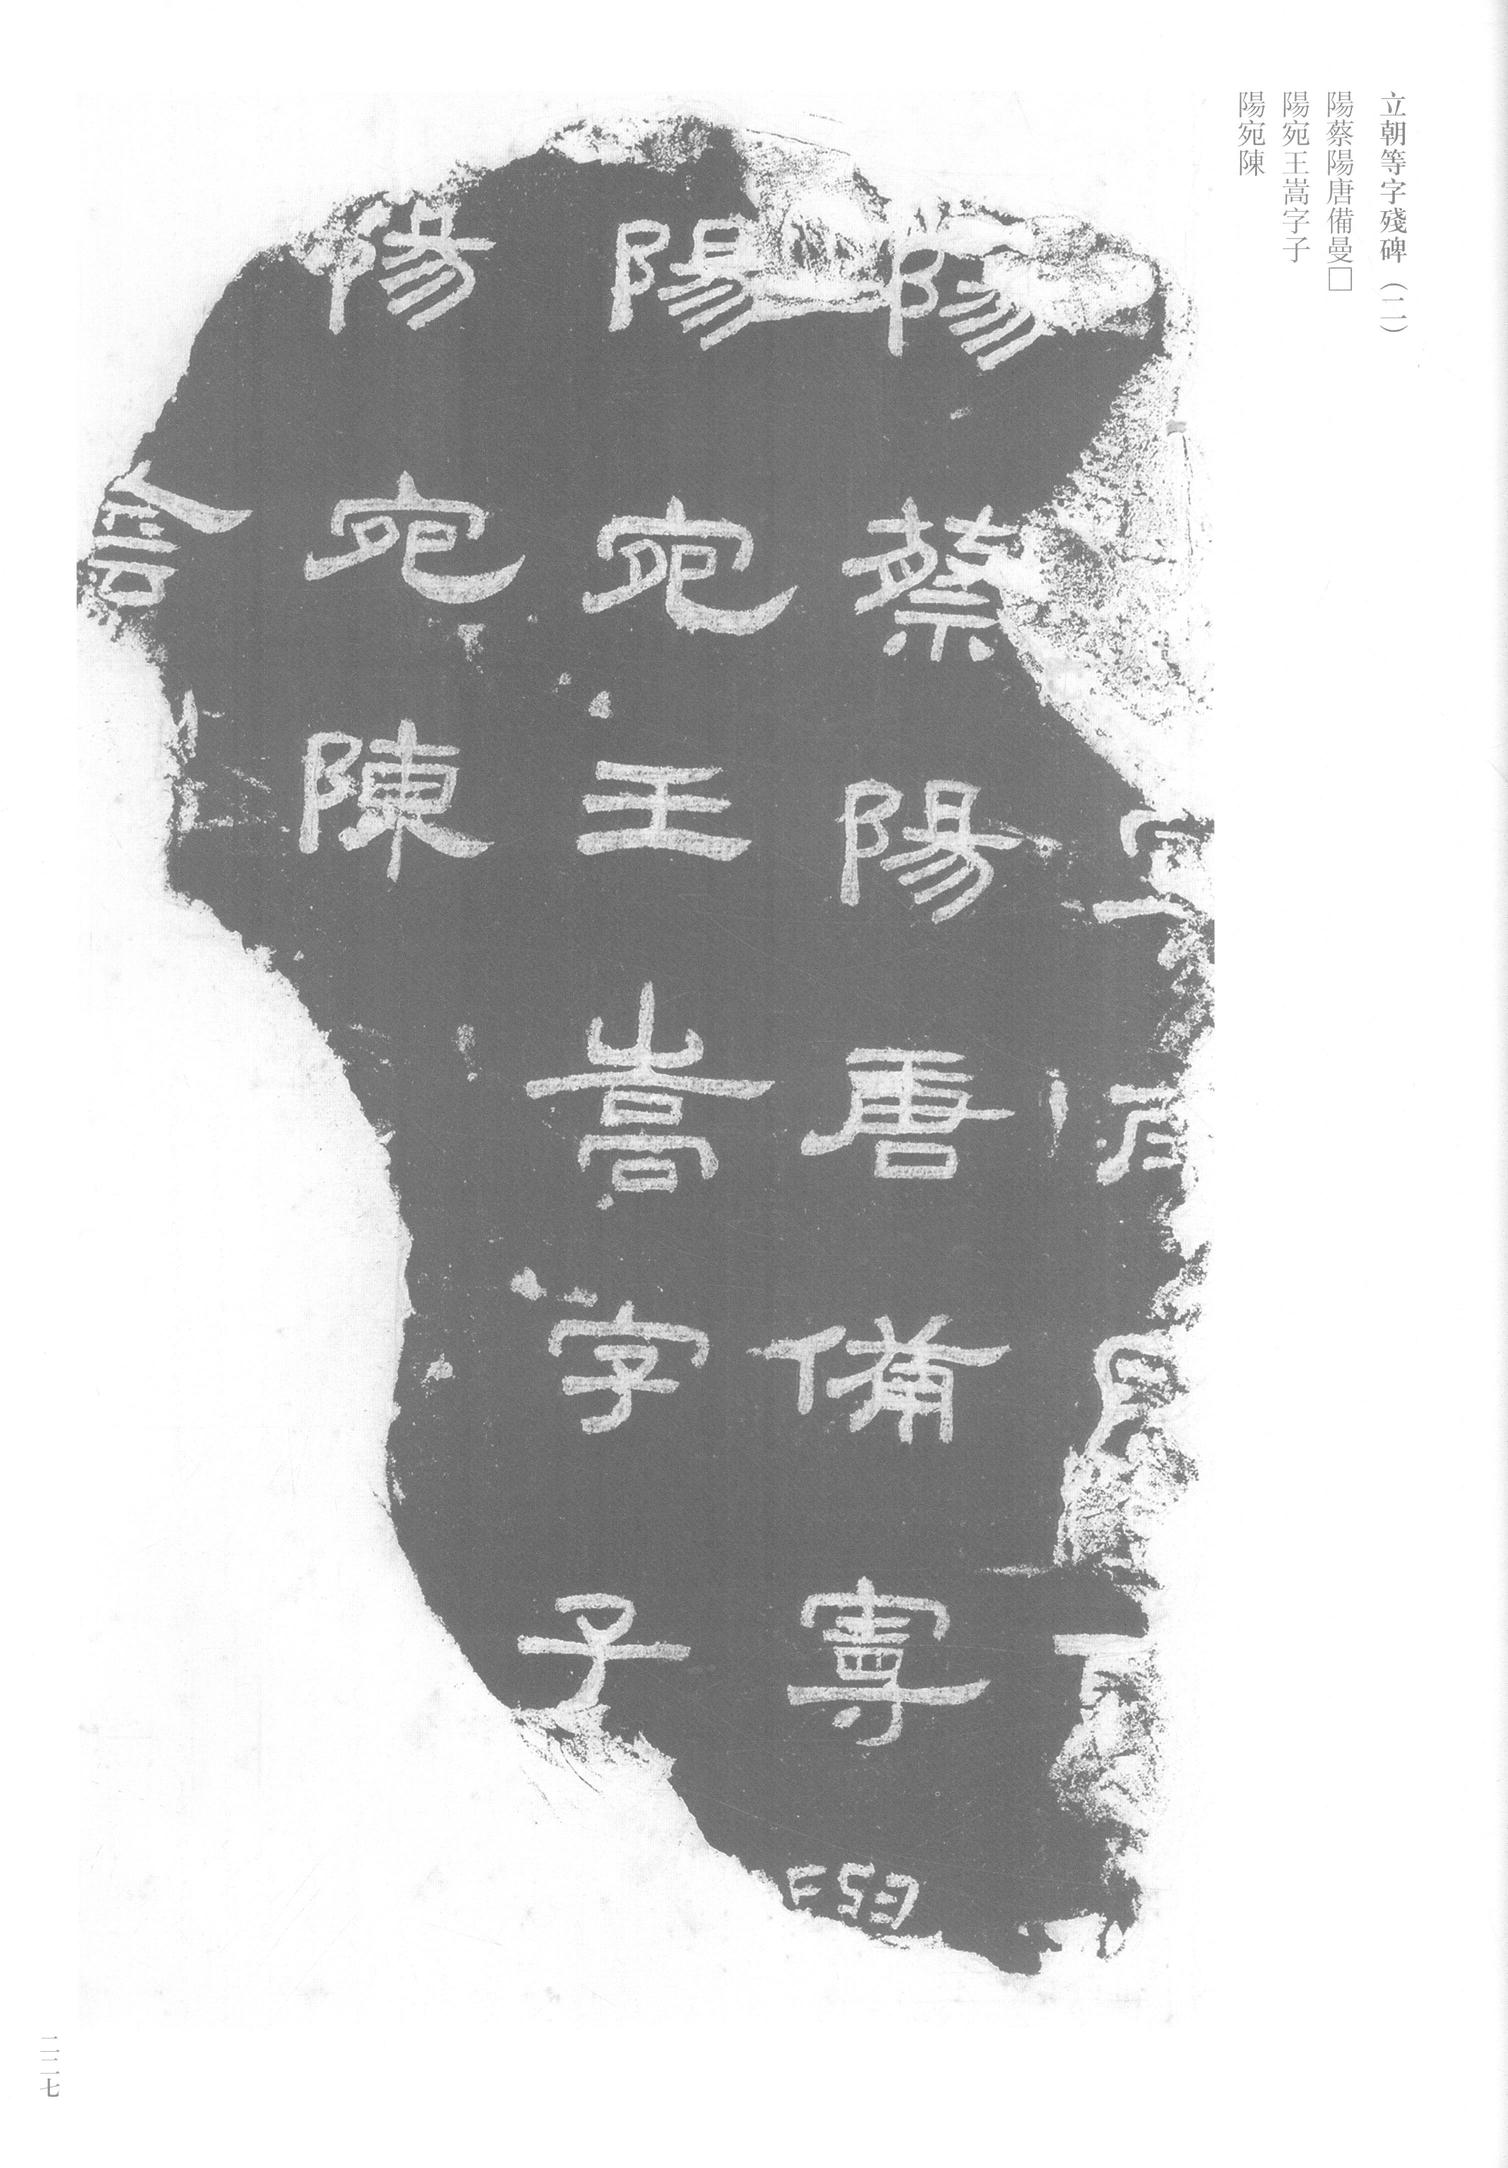 立朝等字殘碑（二）
陽蔡陽唐備曼□
陽宛王嵩字子
陽宛陳
陽蔡陽唐備
陽宛王嵩字子
陽宛陳
二二七